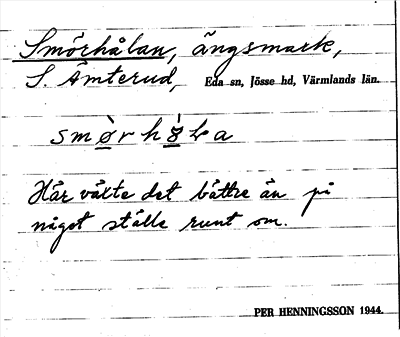 Smörhålan, ängsmark,
S. Ämterud, Eda sn, Jösse hd, Värmlands län.
Här växte det bättre än på
något ställe runt om.
PER HENNINGSSON 1944.